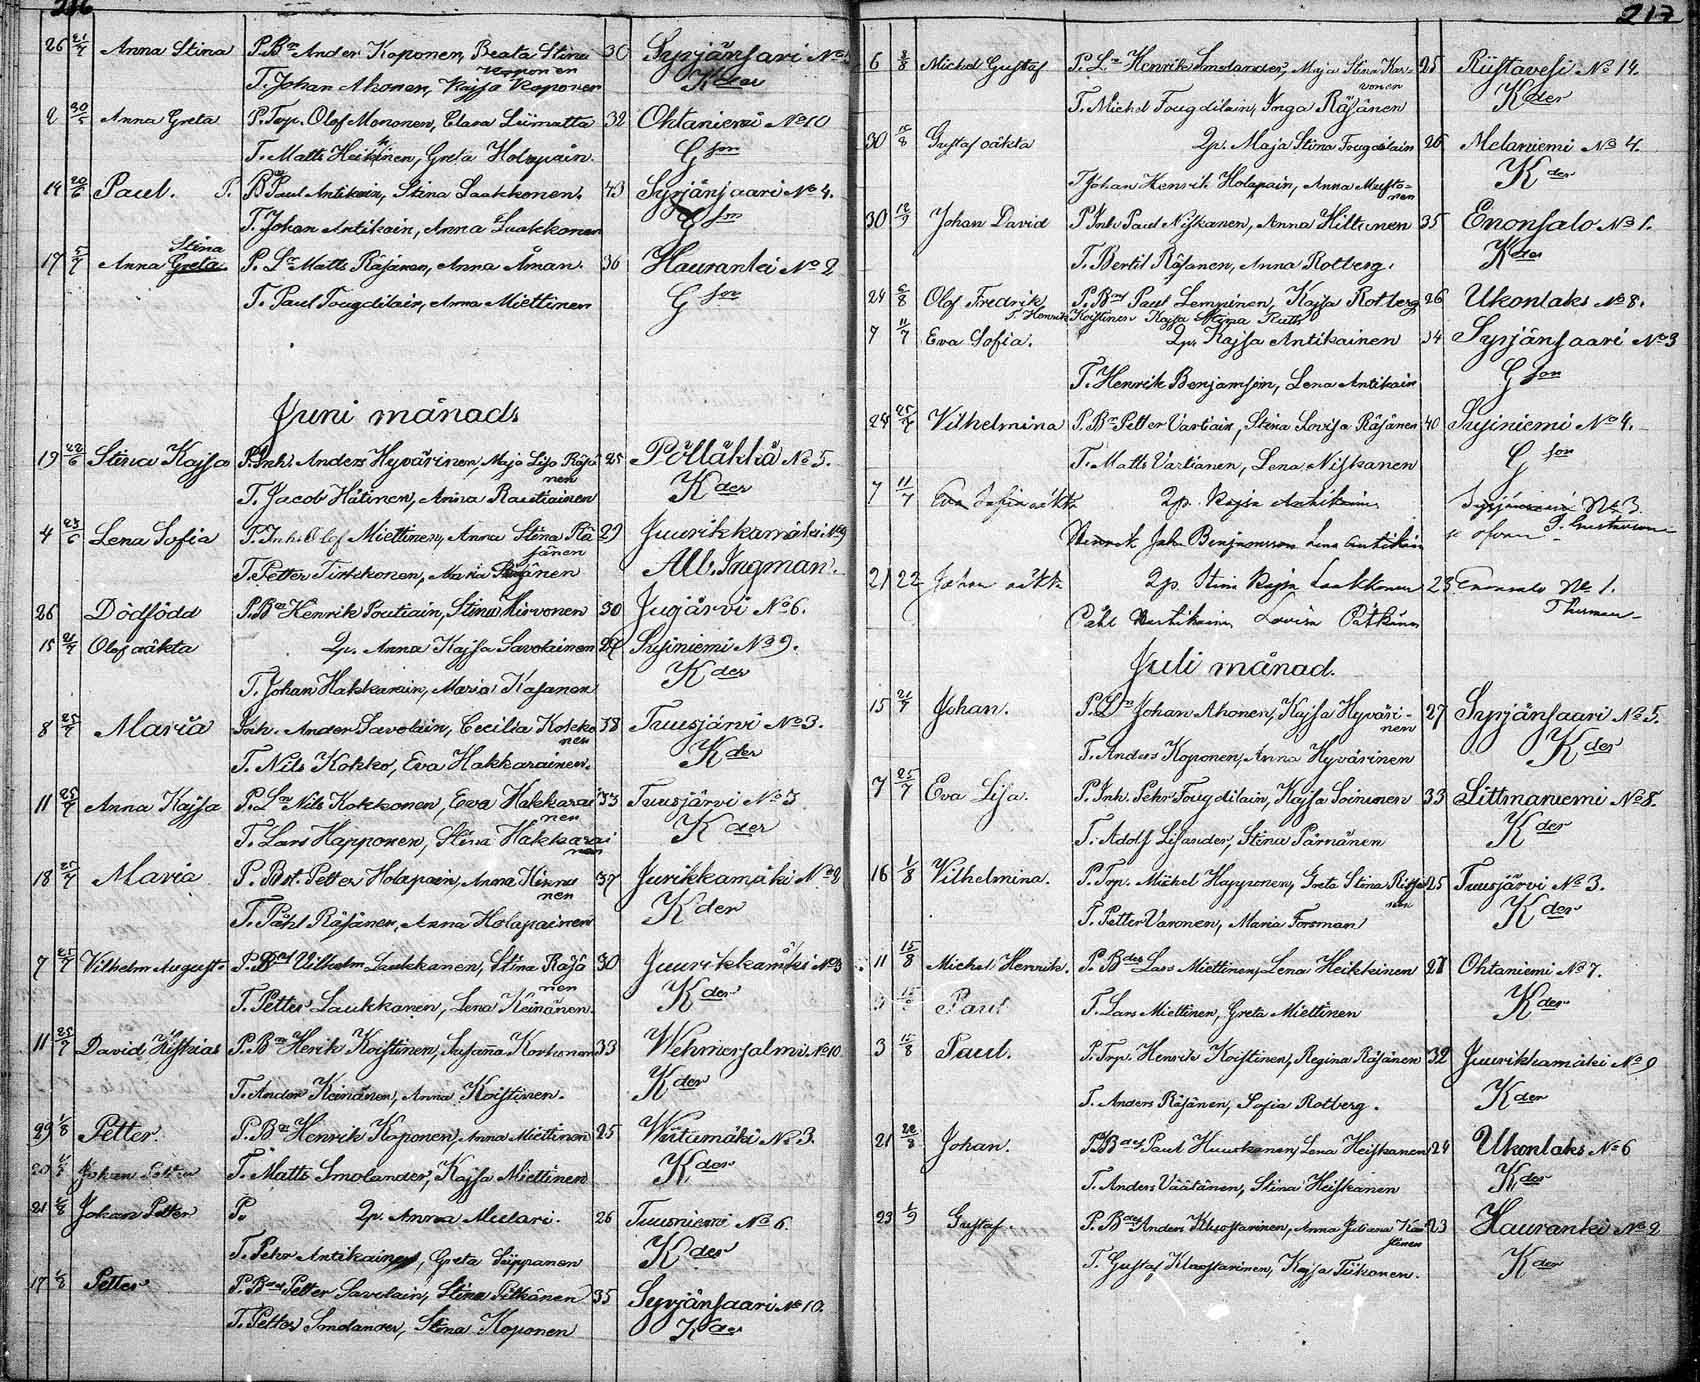 216
26 21/7 Anna Stina P. Bn Ander Koponen, Beata Stina Kopponen 30 Syrjänsari No
T. Johan Ahonen, Kajsa Koponen Kder
2 20/5 Anna Greta P. Torp. Olof Mononen, Clara Liimatta 32 Ohtaniemi No 10
T. Matts Heikinen, Greta Holopain. Gson
14 20/6 Paul. P. Bn Paul Antikain, Stina Laakkonen. 43 Syrjänsaari No 4.
T. Johan Antikain, Anna Laakkonen Gson
17 5/7 Anna Greta Stina P. Ln Matts Räsänen, Anna Åman. 36 Hauranki No 2
T. Paul Tougdilain, Anna Miettinen Gson
Juni månads
19 22/6 Stina Kajsa P. Inh. Anders Hyvärinen, Maja Lisa Räsänen 25 Pölläkkä No 5.
T. Jacob Hätinen, Anna Rautiainen Kder
4 23/6 Lena Sofia P. Inh. Olof Miettinen, Anna Stina Räsänen 29 Juurikkamäki No 9
T. Petter Tirkkonen, Maria Räsänen Alb. Ingman.
26 Dödfödd P. Bn Henrik Poutiain, Stina Hirvonen 30 Jugjärvi No 6.
15 21/7 Olof oäkta Qp. Anna Kajsa Savolainen 27 Sujiniemi No 9.
T. Johan Hakkarain, Maria Kasanen Kder
8 25/7 Maria Inh. Ander Savolain, Cecilia Kokkonen 38 Tuusjärvi No 3.
T. Nils Kokko, Eva Hakkarainen. Kder
11 25/7 Anna Kajsa P. Ln Nils Kokkonen, Eva Hakkarainen 33 Tuusjärvi No 3
T. Lars Happonen, Stina Hakkarainen Kder
18 25/7 Maria P. Bst. Petter Holapain, Anna Hirvonen 37 Jurikkamäki No 2
T. Påhl Räsänen, Anna Holapainen Kder
7 25/7 Vilhelm August P. Bn Vilhelm Laukkanen, Stina Räsänen 30 Juurikkamäki No 3
T. Petter Laukkanen, Lena Keinänen. Kder
11 25/7 David Hiskias P. Bn Herik Koistinen, Susanna Korhonen 33 Wehmersalmi No 10
T. Ander Keinänen, Anna Koistinen. Kder
29 1/8 Petter. P. Bn Henrik Koponen, Anna Miettinen 25 Wiitamäki No 3.
20 1/8 Johan Petter T. Matts Smolander, Kajsa Miettinen Kder
21 1/8 Johan Petter P. Qp. Anna Mulari. 26 Tuusniemi No 6.
T. Pehr Antikainen, Greta Seppanen Kder
17 1/8 Petter P. Bn Petter Savolain, Stina Pitkänen 35 Syrjänsaari No 10.
T. Petter Smolander, Stina Koponen Kder
217
6 8/8 Michel Gustaf P. Ln Henrik Smolander, Maja Stina Karvonen 25 Riistavesi No 14.
T. Michel Tougdilain, Inga Räsänen Kder
30 15/8 Gustaf oäkta Qp. Maja Stina Tougdilain 26 Melaniemi No 4.
T. Johan Henrik Holapain, Anna Mustonen Kder
30 12/9 Johan David P. Inh. Paul Niskanen, Anna Hiltunen 35 Enonsalo No 1.
T. Bertil Räsanen, Anna Rotberg. Kder
24 6/8 Olof Fredrik P. Bn Paul Lempinen, Kajsa Rotberg 26 Ukonlaks No 8.
T. Henrik Koistinen Kajsa Stina Ruth
7 11/7 Eva Sofia. Qp. Kajsa Antikainen 34 Syrjänsaari No 3
T. Henrik Benjamson, Lena Antikain Gson
24 25/7 Vilhelmina P. Bn Petter Vartiain, Stina Lovisa Räsänen 40 Sujiniemi No 4.
T. Matts Vartianen, Lena Niskanen Gson
7 11/7 Eva Sofia oäkta Qp. Kajsa Antikain Syrjänsaari No 3.
Henrik Joh. Benjamsson Lena Antikain
21 22 Johan oäkta Qp. Stina Kajsa Laakkonen 23 Enonsalo No 1.
Påhl Lovisa
Juli månad.
15 21/7 Johan. P. Ln Johan Ahonen, Kajsa Hyvärinen 27 Syrjänsaari No 5.
T. Anders Koponen, Anna Hyvärinen Kder
7 25/7 Eva Lisa. P. Inh. Pehr Tougdilain, Kajsa Soininen 33 Littmaniemi No 8.
T. Adolf Lisander, Stina Pärnänen Kder
16 1/8 Vilhelmina. P. Torp. Mickel Happonen, Greta Stina 25 Tuusjärvi No 3.
T. Petter Varonen, Maria Forsman Kder
11 15/8 Michel Henrik. P. Bdes Lars Miettinen, Lena Heikkinen 21 Ohtaniemi No 7.
Paul T. Lars Miettinen, Greta Miettinen Kder
3 15/8 Paul. P. Torp. Henrik Koistinen, Regina Räsänen 32 Juurikkamäki No 9
T. Anders Räsänen, Sofia Rotberg. Kder
21 22/8 Johan. P. Bn Paul Huuskonen, Lena Heiskanen 24 Ukonlaks No 6
T. Anders Väätänen, Stina Heiskanen Kder
23 1/9 Gustaf. P. Bdes Anders Kluostarinen, Anna 23 Hauranki No 2
T. Gustaf Klaostarinen, Kajsa Tiikonen. Kder